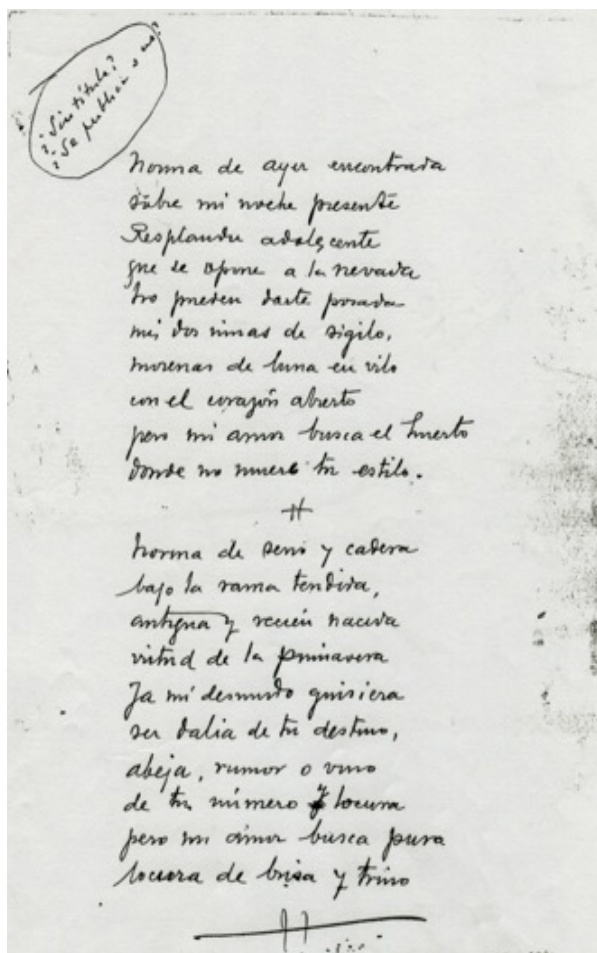 ¿Sin título?
¿Se publicó o no?
Norma de ayer encontrada
sobre mi noche presente
Resplandor adolescente
que se opone a la nevada
No pueden darte posada
mis dos niñas de sigilo,
morenas de luna en vilo
con el corazón abierto
pero mi amor busca el huerto
donde no muere tu estilo.
Norma de seno y cadera
bajo la rama tendida,
antigua y recién nacida
virtud de la primavera
Ya mi desnudo quisiera
ser dalia de tu destino,
abeja, rumor o vino
de tu número y locura
pero mi amor busca pura
locura de brisa y trino